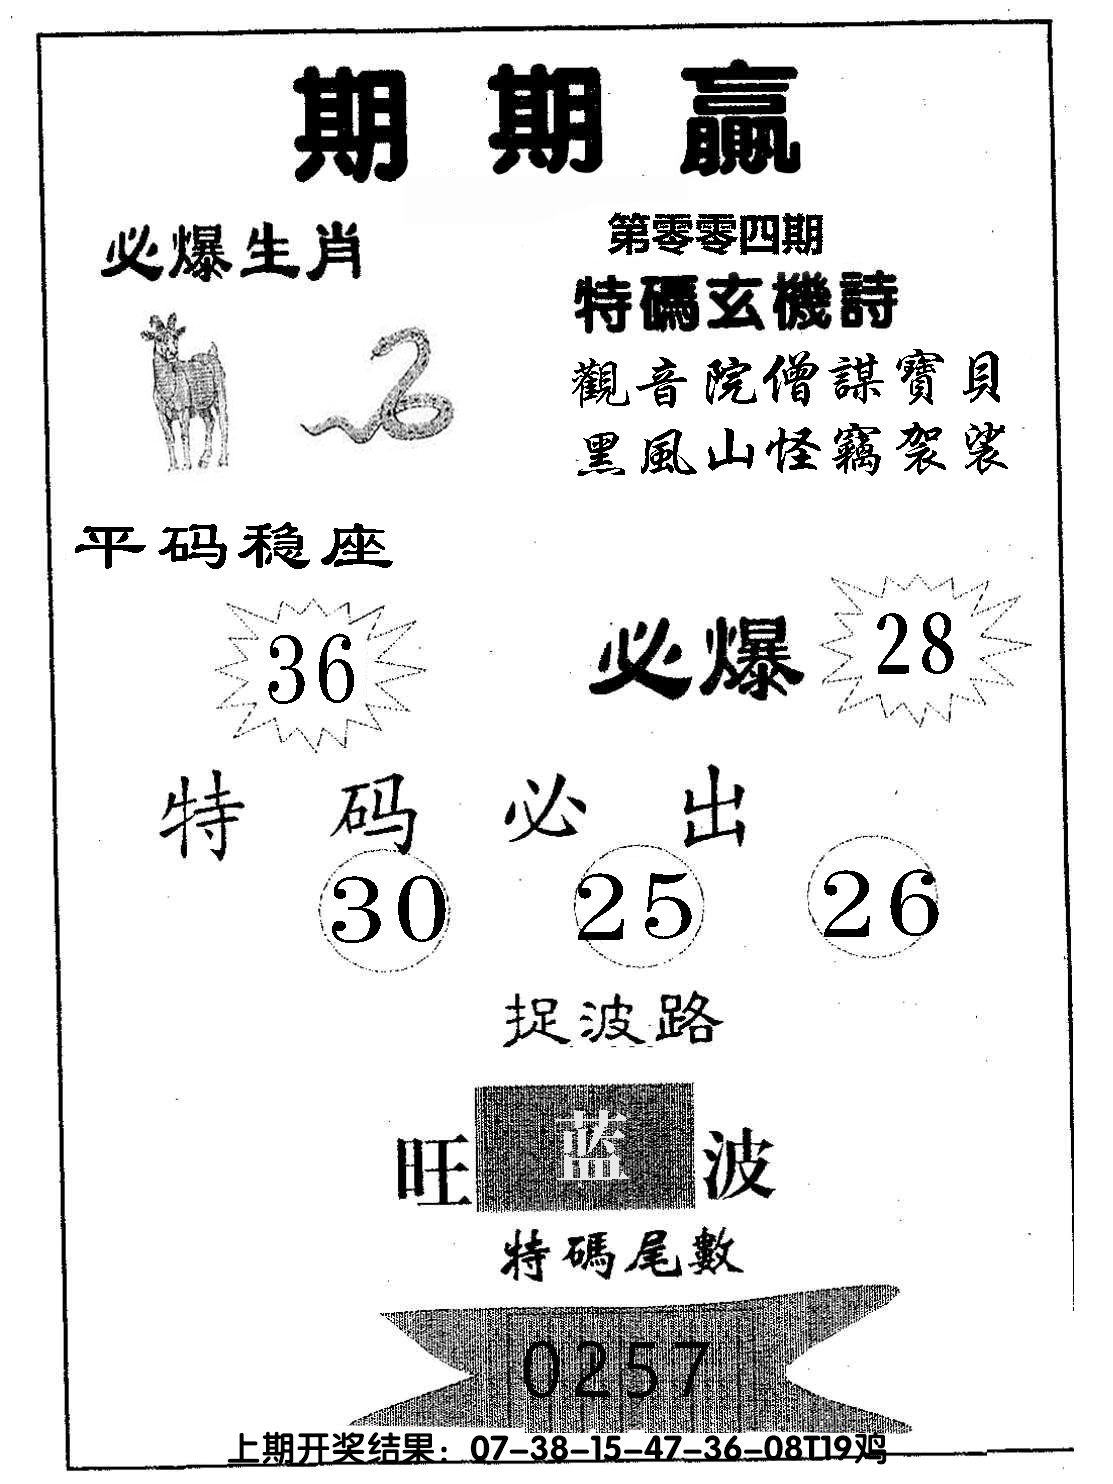 期期赢
必爆生肖
第零零四期
特碼玄機詩
觀音院僧謀寶貝
黑風山怪竊袈裟
平码稳座
36
必爆
28
特码必出
30 25 26
捉波路
旺蓝波
特碼尾數
0257
上期开奖结果：07-38-15-47-36-08T19鸡